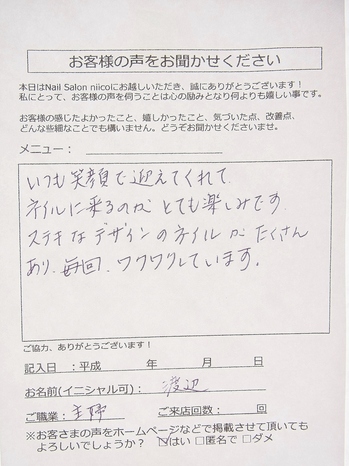 お客様の声をお聞かせください
本日はNail Salon niicoにお越しいただき、誠にありがとうございます！
私にとって、お客様の声を伺うことは心の励みとなり何よりも嬉しい事です。
お客様の感じたよかったこと、嬉しかったこと、気づいた点、改善点、
どんな些細なことでも構いません。どうぞお聞かせくださいませ。
メニュー：
いつも笑顔で迎えてくれて
ネイルに来るのがとても楽しみです.
ステキなデザインのネイルがたくさん
あり、毎回、ワクワクしています。
ご協力、ありがとうございます！
記入日：平成 年 月 日
お名前(イニシャル可)： 渡辺
ご職業： 主婦 ご来店回数： 回
※お客さまの声をホームページなどで掲載させて頂いても
よろしいでしょうか？ ☑はい □匿名で □ダメ